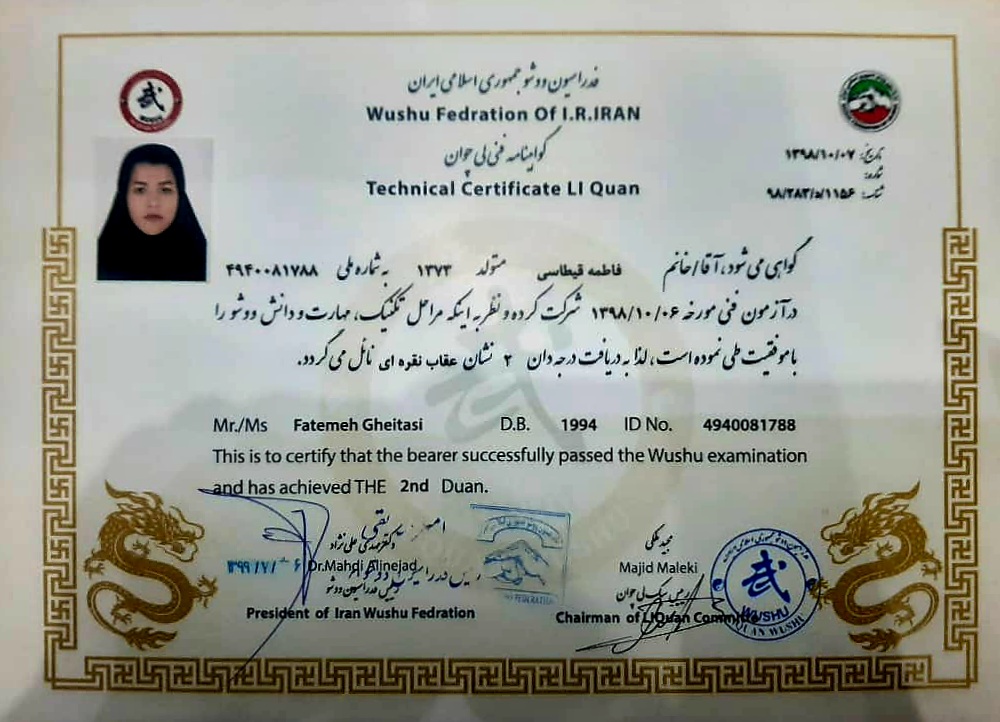 فدراسیون ووشو جمهوری اسلامی ایران
Wushu Fedration Of I.R.IRAN
گواهینامه فنی لی چوان
Technical Certificate LI Quan
تاریخ: ۱۳۹۸/۱۰/۰۷
شماره:
۹۸/۲۸۳/د/۱۱۵۶
گواهی می شود، آقا/خانم فاطمه قیطاسی متولد ۱۳۷۳ به شماره ملی ۴۹۴۰۰۸۱۷۸۸
در آزمون فنی مورخه ۱۳۹۸/۱۰/۰۶ شرکت کرده و نظر به اینکه مراحل تکنیک، مهارت و دانش ووشو را
با موفقیت طی نموده است، لذا به دریافت درجه دان ۲ نشان عقاب نقره ای نائل می گردد.
Mr./Ms Fatemeh Gheitasi D.B. 1994 ID No. 4940081788
This is to certify that the bearer successfully passed the Wushu examination
and has achieved THE 2nd Duan.
دکتر مهدی علی نژاد
Dr.Mahdi Alinejad
رئیس فدراسیون ووشو
President of Iran Wushu Fedration
مجید ملکی
Majid Maleki
رئیس سبک لی چوان
Chairman of LIQuan Committe
武
WUSHU